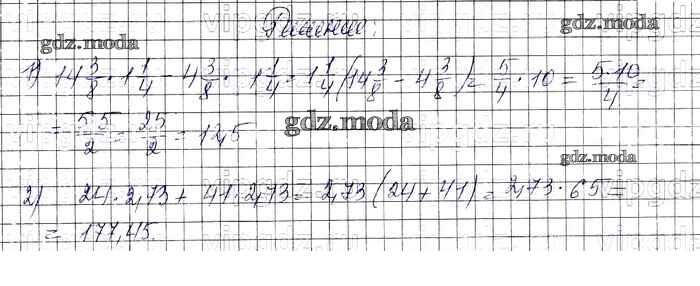 Решение:
gdz.moda gdz.moda
1) 14 3/8 · 1 1/4 - 4 3/8 · 1 1/4 = 1 1/4 (14 3/8 - 4 3/8) = 5/4 · 10 = 5·10/4 =
= 5·5/2 = 25/2 = 12,5
gdz.moda
gdz.moda
2) 24 · 2,73 + 41 · 2,73 = 2,73 (24 + 41) = 2,73 · 65 =
= 177,45.